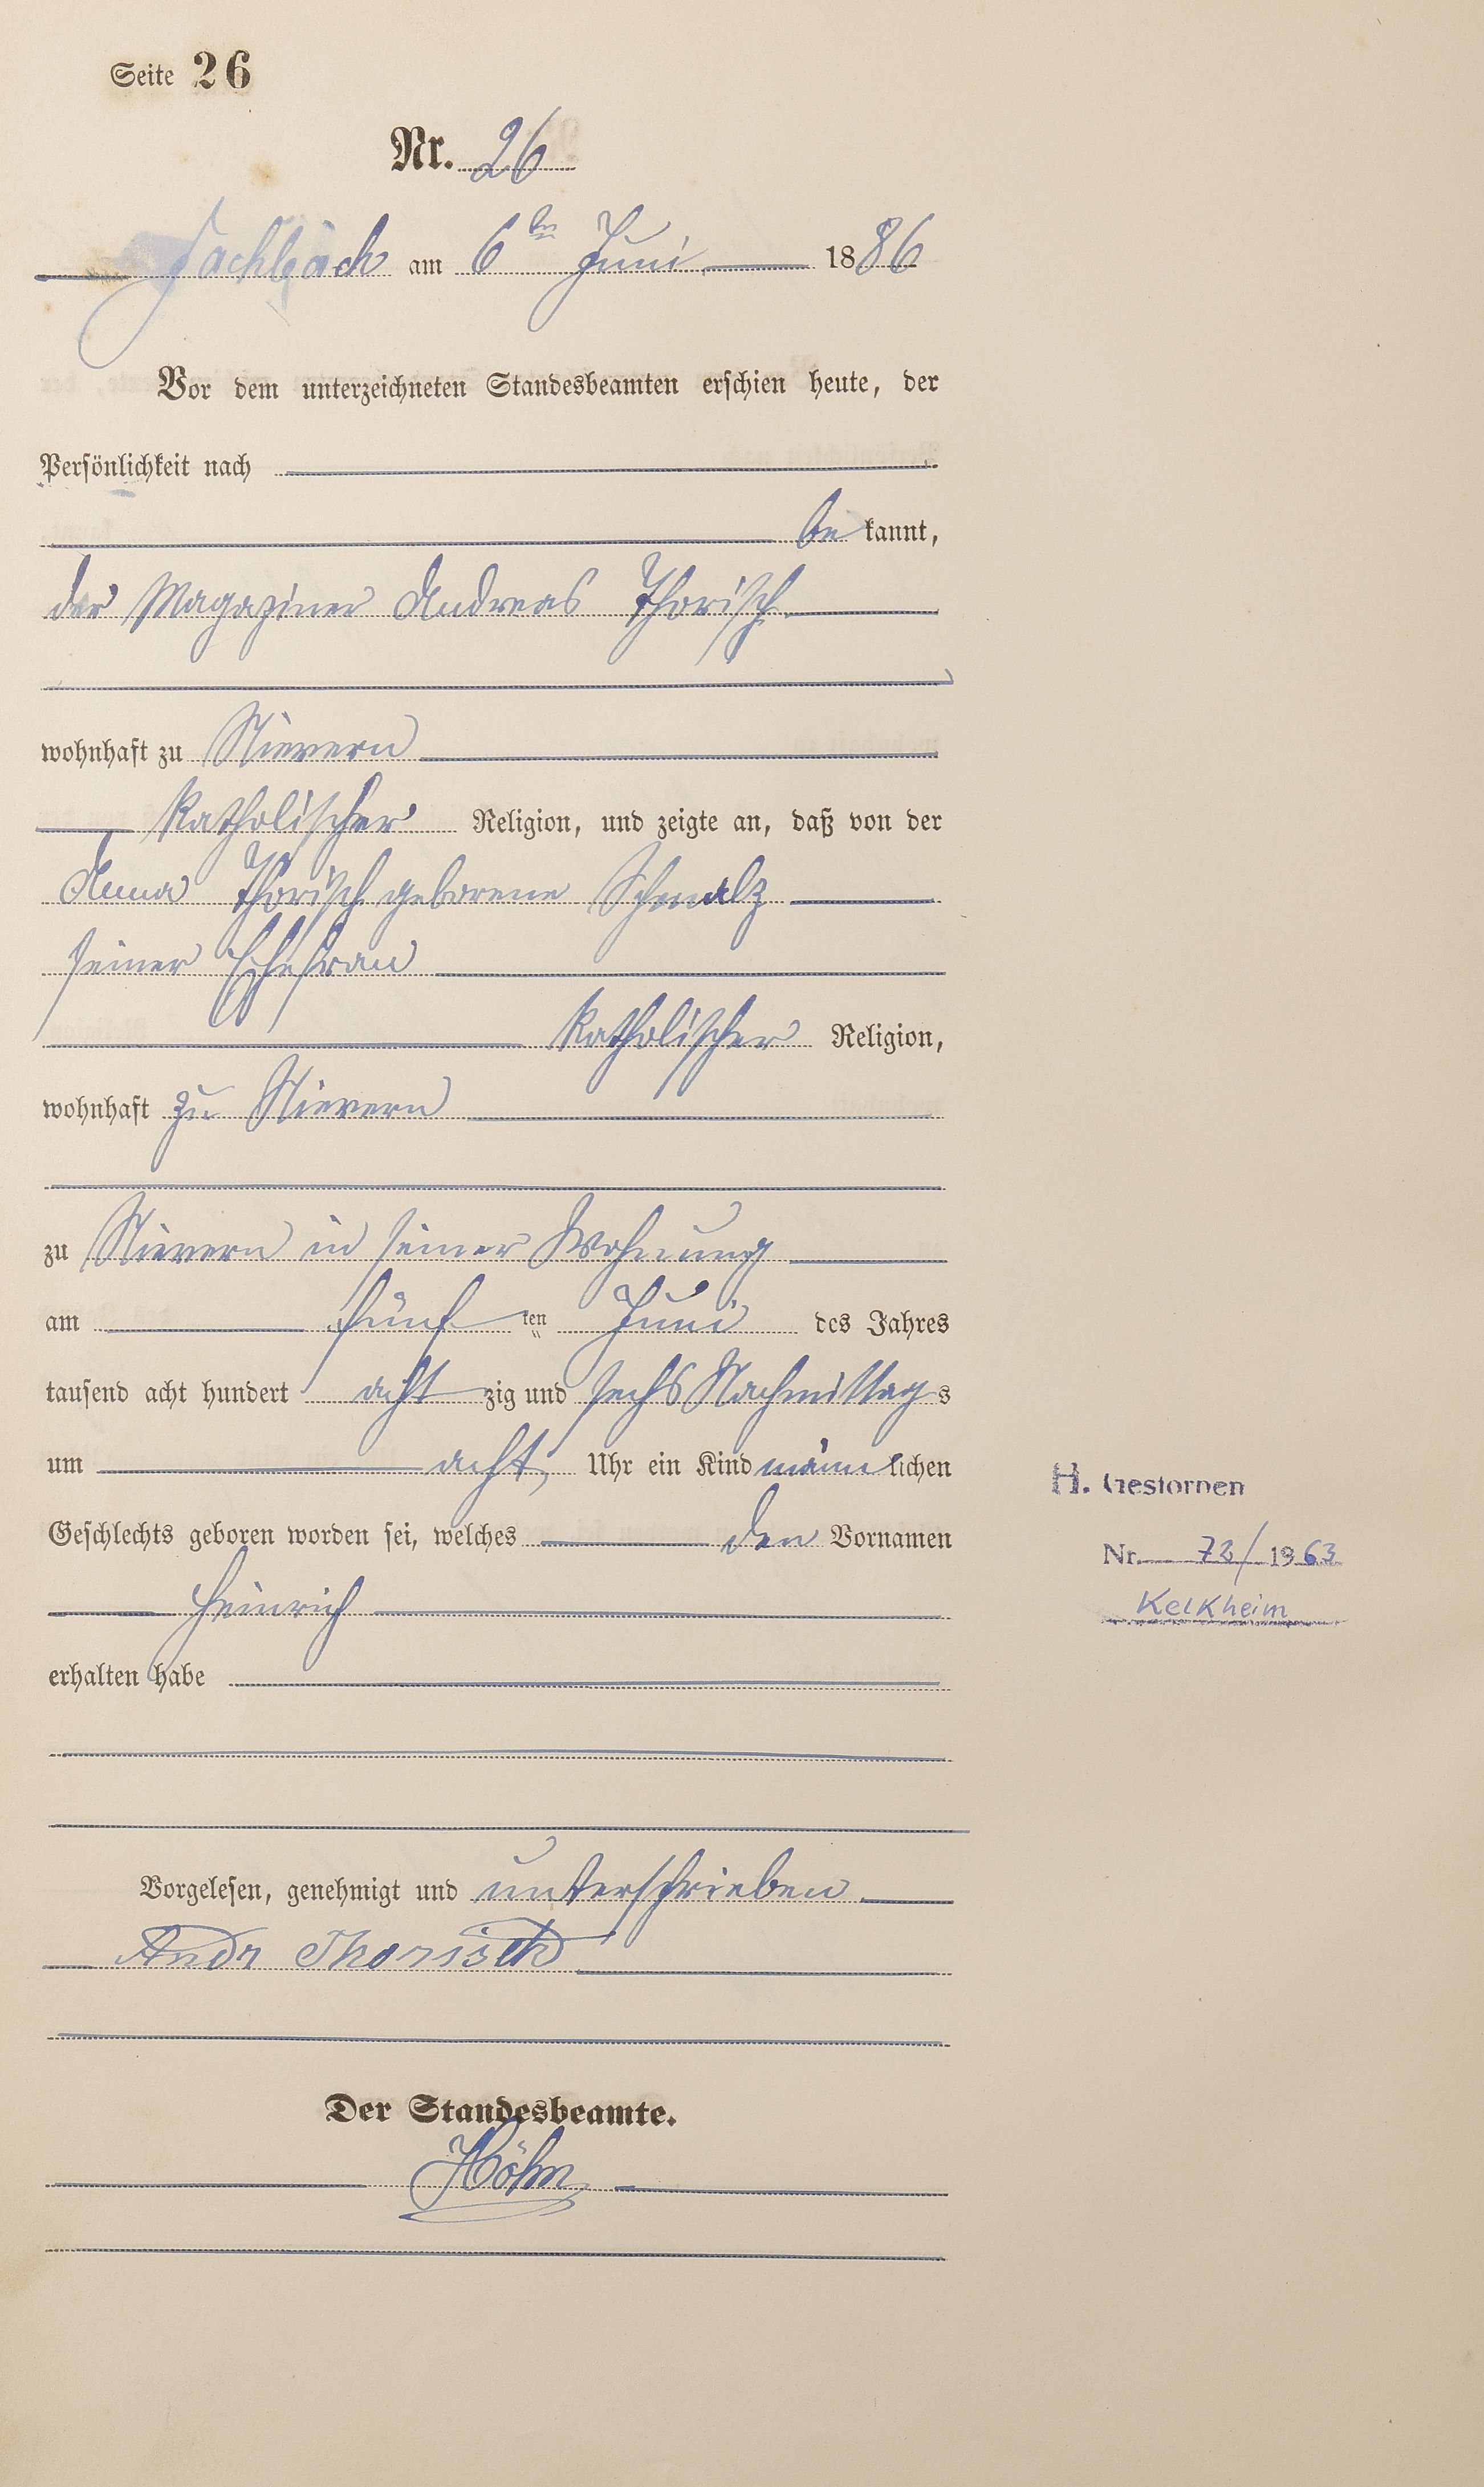 Seite 26
Nr. 26
Fachbach am 6ten Juni 1886
Vor dem unterzeichneten Standesbeamten erschien heute, der
Persönlichkeit nach
bekannt,
der Magaziner Andreas Thorisch
wohnhaft zu Nievern
katholischer Religion, und zeigte an, daß von der
Anna Thorisch geborene Schmalz
seiner Ehefrau
katholischer Religion,
wohnhaft zu Nievern
zu Nievern in seiner Wohnung
am fünften Juni des Jahres
tausend acht hundert achtzig und sechs Nachmittags
um acht Uhr ein Kind männlichen
Geschlechts geboren worden sei, welches den Vornamen
Heinrich
erhalten habe
Vorgelesen, genehmigt und unterschrieben
Andr Thorisch
Der Standesbeamte.
Höhn
H. Gestorben
Nr. 73/1963
Kelkheim